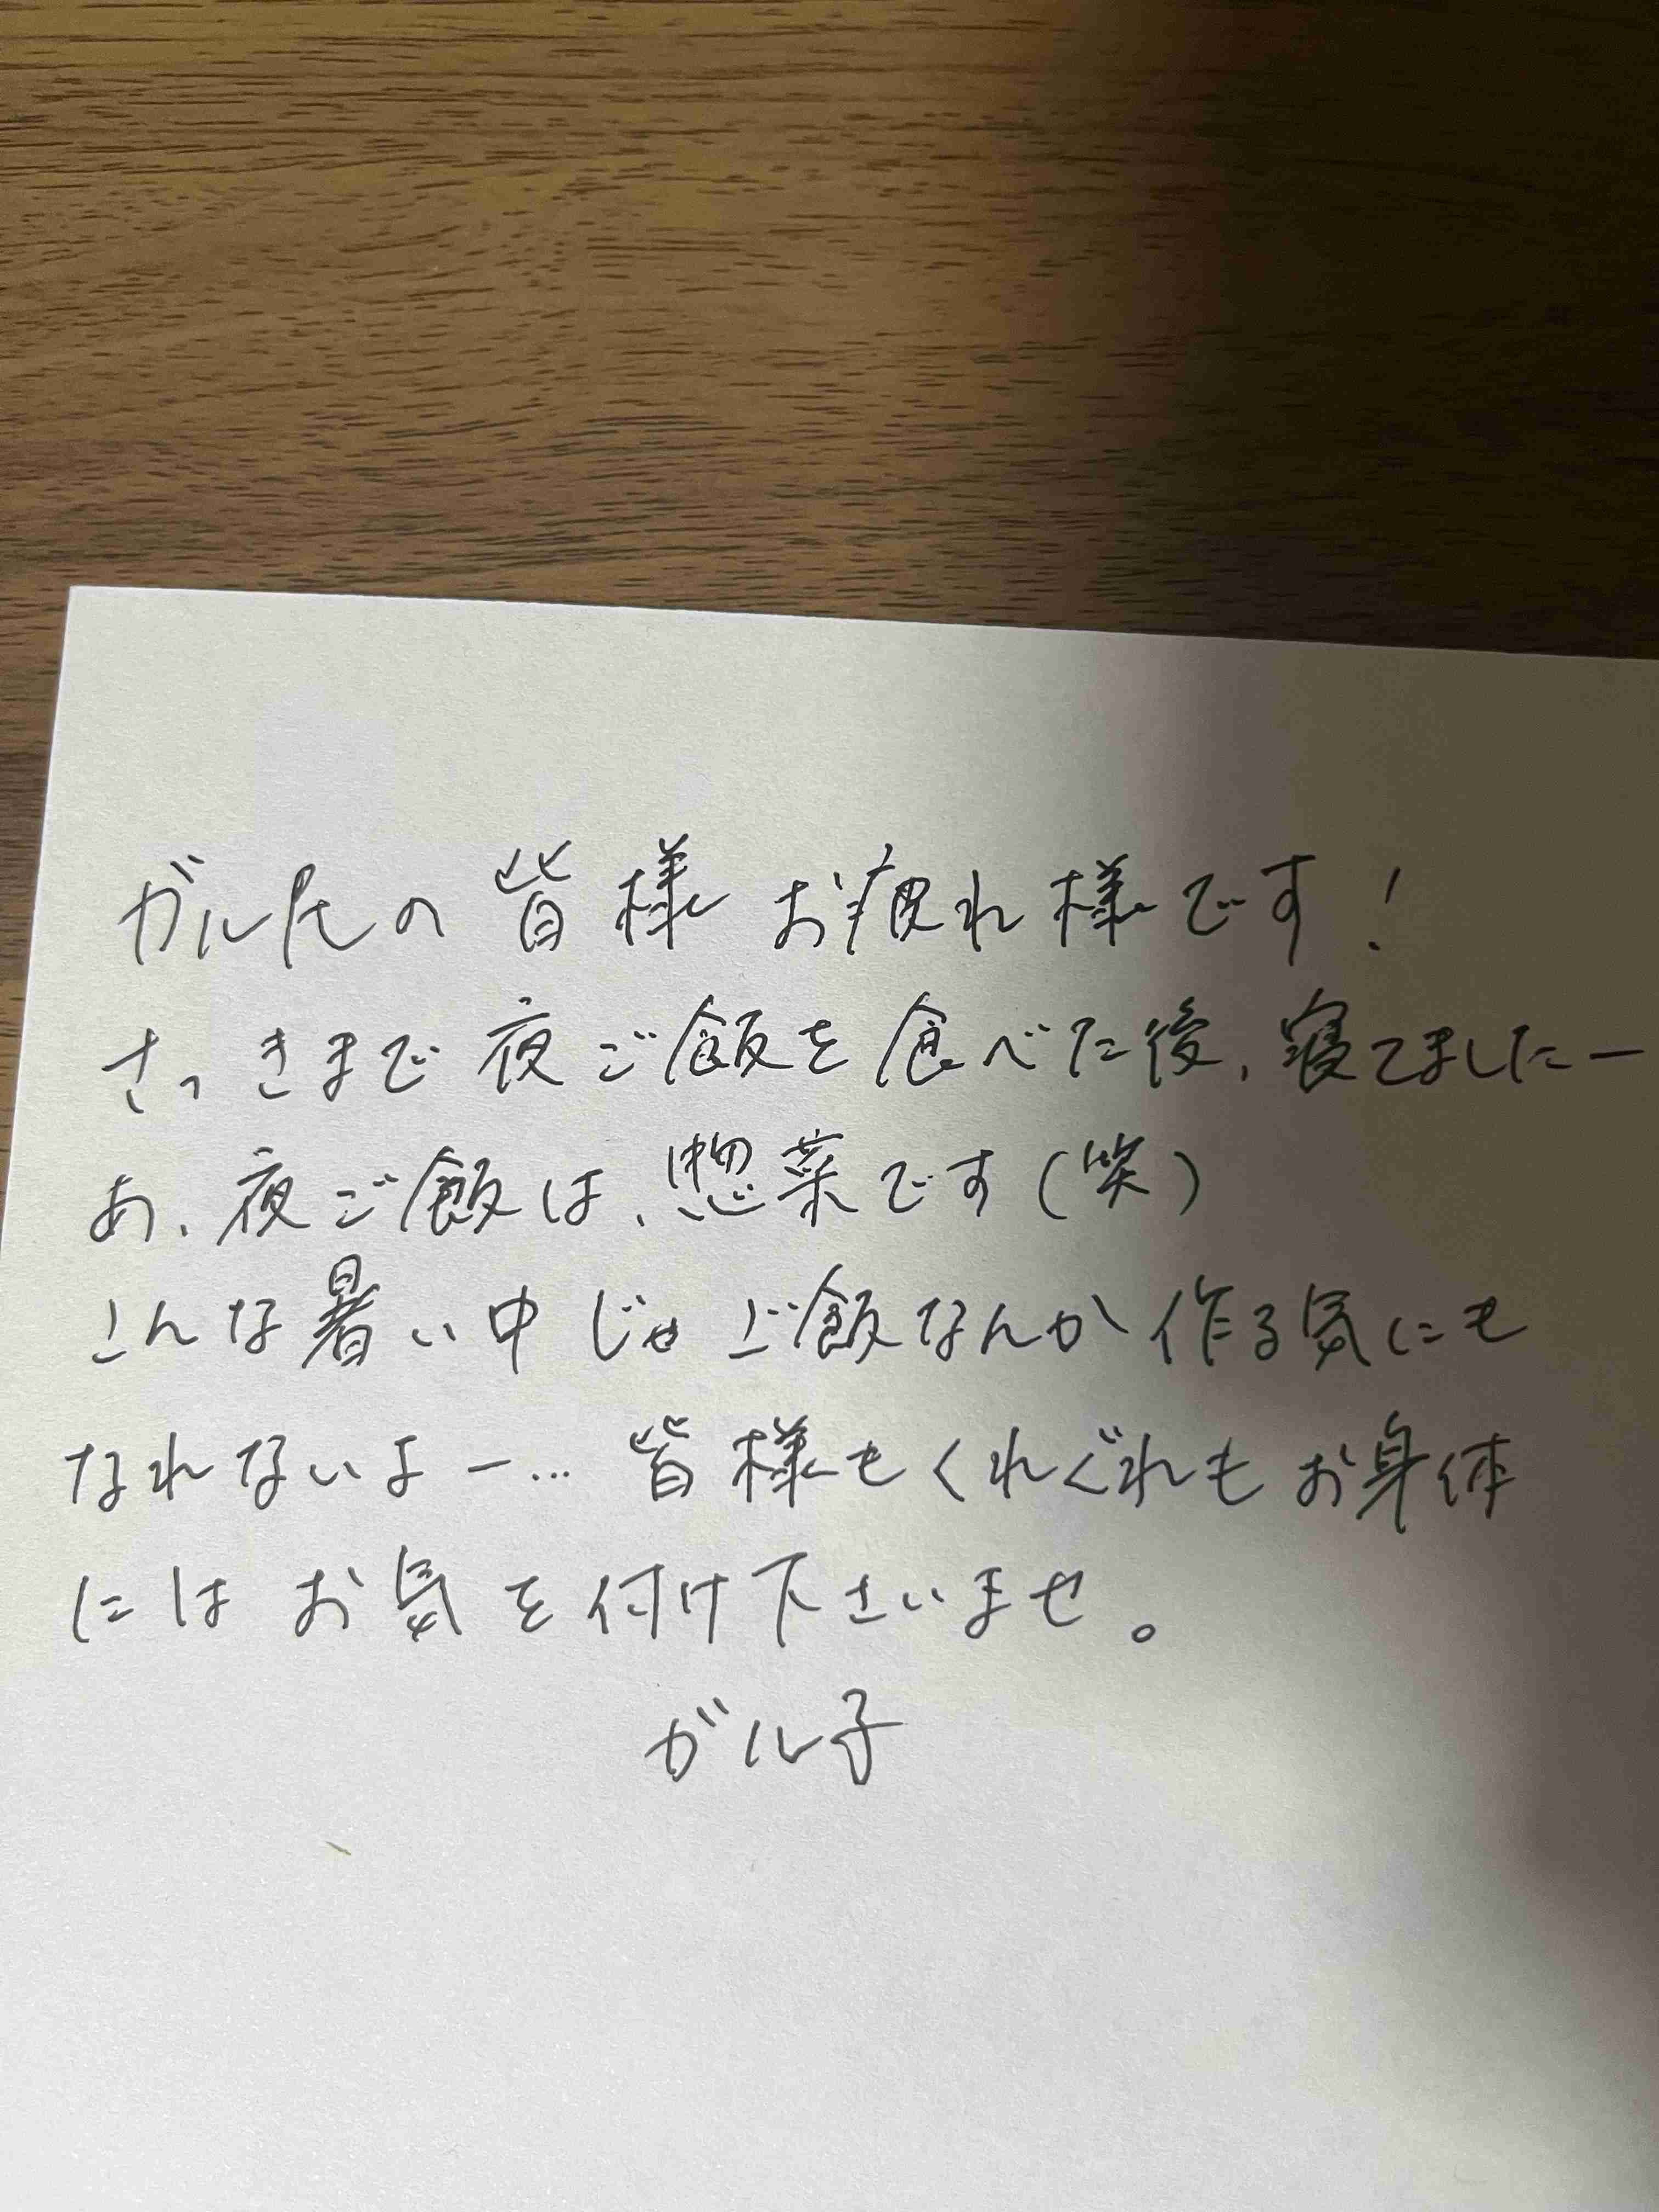 ガル民の皆様 お疲れ様です!
さっきまで夜ご飯を食べた後、寝てましたー
あ、夜ご飯は、惣菜です(笑)
こんな暑い中じゃご飯なんか作る気にも
なれないよー… 皆様もくれぐれもお身体
にはお気を付け下さいませ。
ガル子